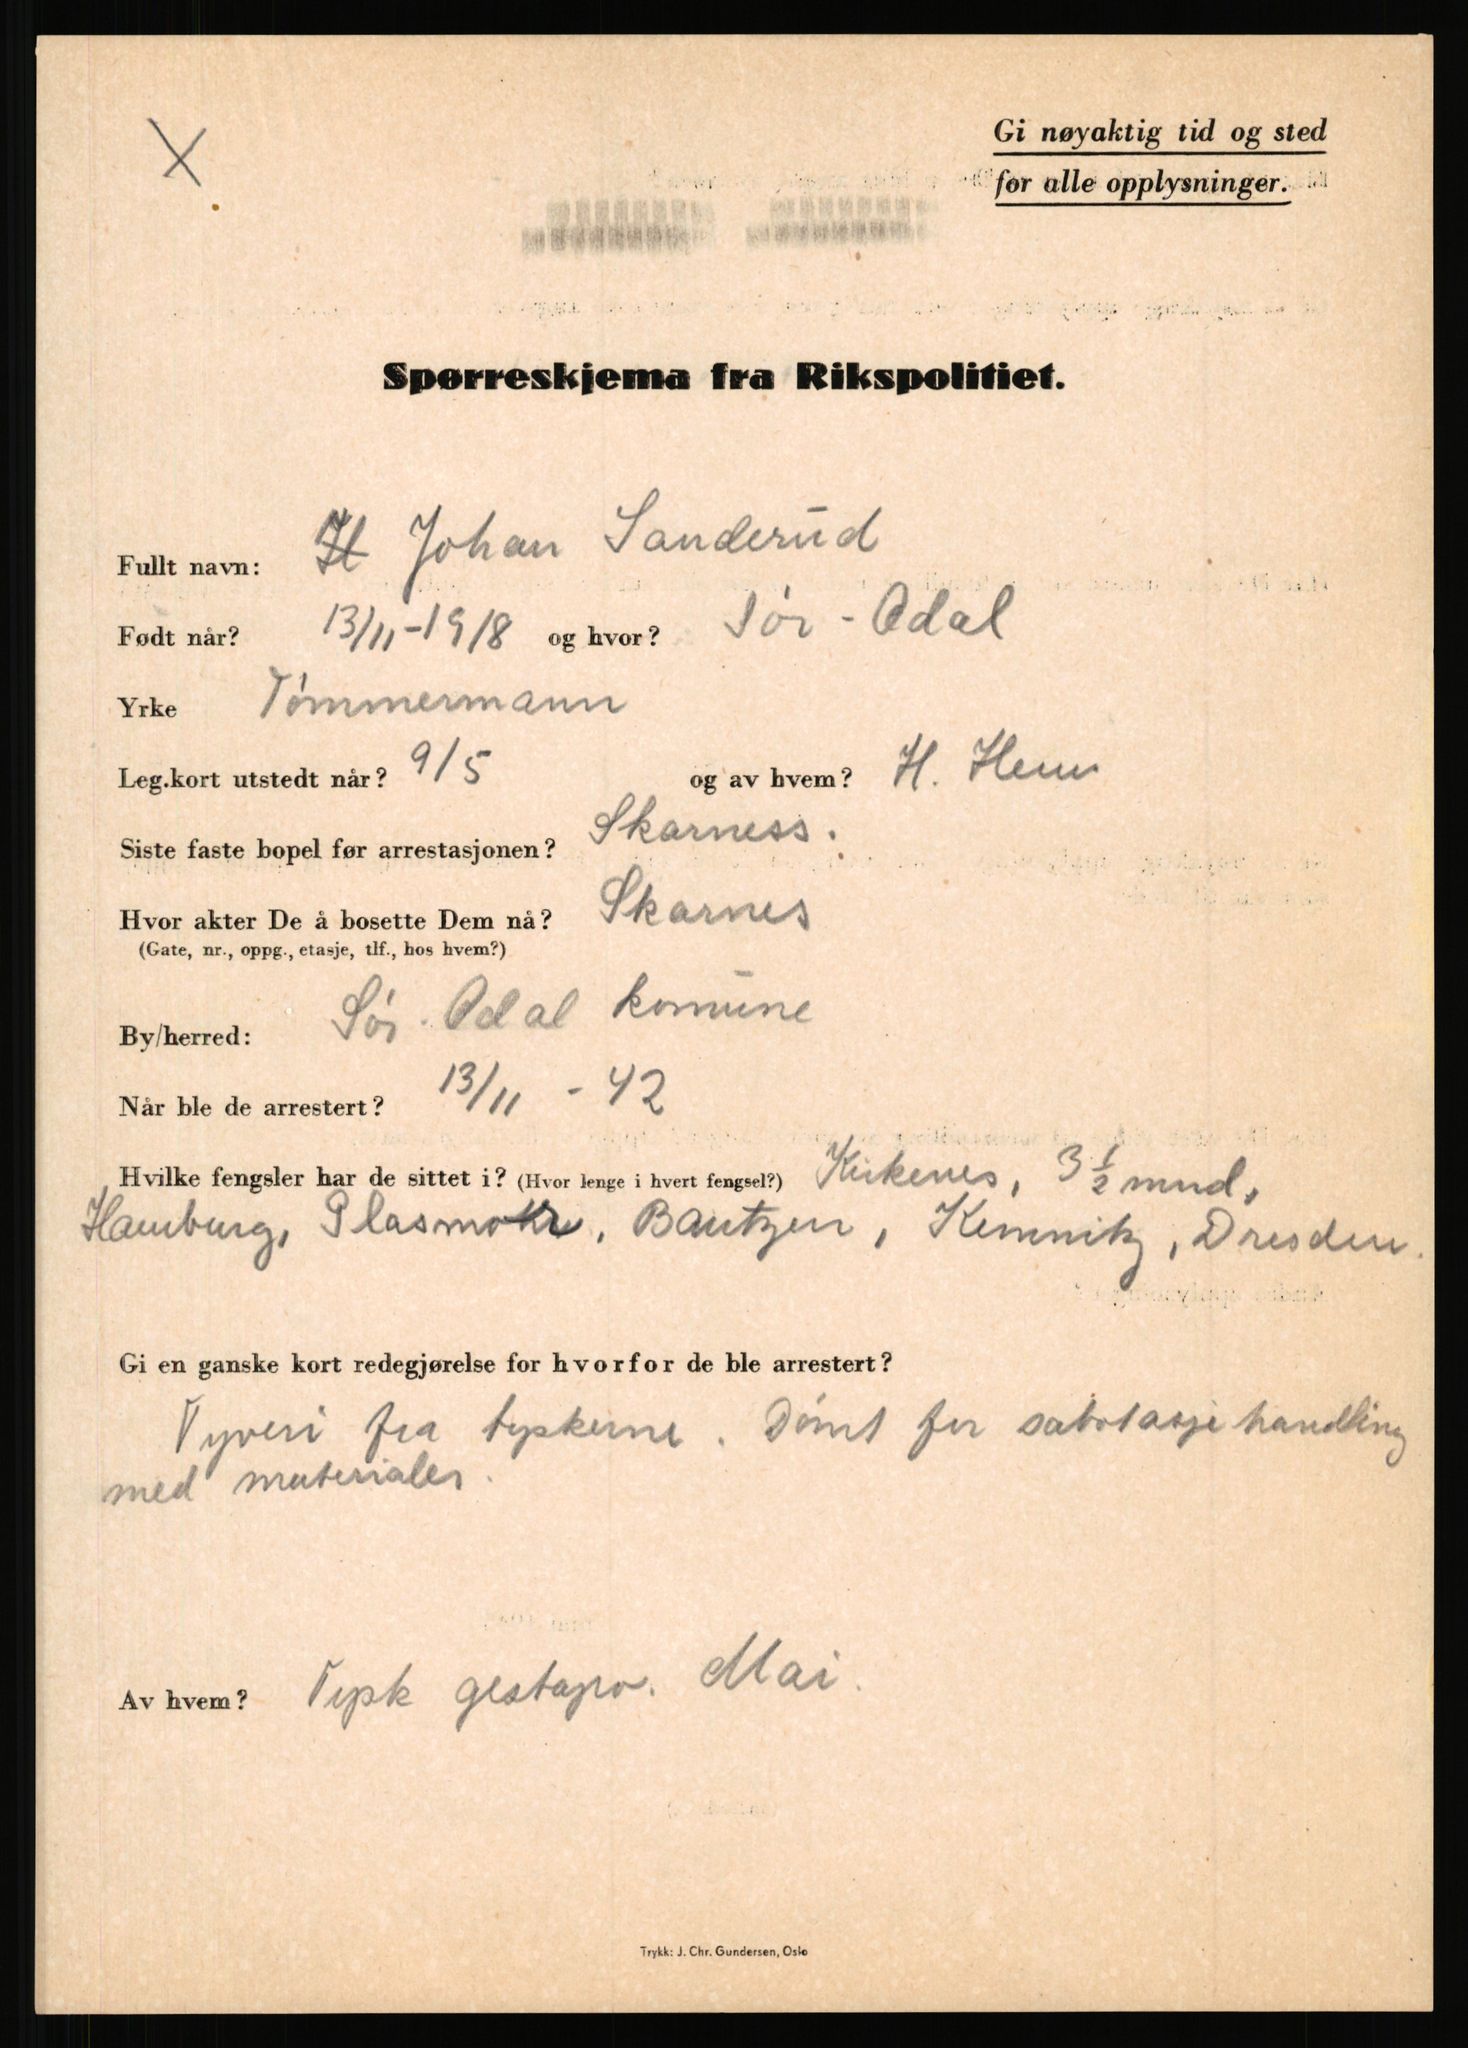 X
Gi nøyaktig tid og sted
for alle opplysninger.
Spørreskjema fra Rikspolitiet.
Fullt navn: H Johan Sanderud
Født når? 13/11-1918 og hvor? Sør-Odal
Yrke Tømmermann
Leg.kort utstedt når? 9/5 og av hvem? H.
Siste faste bopel før arrestasjonen? Skarness.
Hvor akter De å bosette Dem nå? Skarnes
(Gate, nr., oppg., etasje, tlf., hos hvem?)
By/herred: Sør-Odal komune
Når ble de arrestert? 13/11 - 42
Hvilke fengsler har de sittet i? (Hvor lenge i hvert fengsel?) Kirkenes, 3 1/2 mnd,
Hamburg, Bautzen, Kemnitz, Dresden.
Gi en ganske kort redegjørelse for hvorfor de ble arrestert?
Tyveri fra tyskerne. Dømt for sabotasje handling
med materialer.
Av hvem? Tysk gestapo. Mai.
Trykk: J. Chr. Gundersen, Oslo